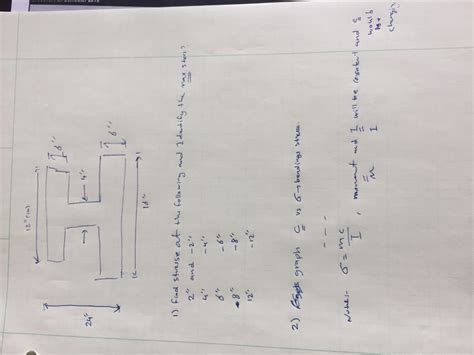 12" (in)
6"
4"
6"
24"
18"
1) Find stresse at the following and Identify the max stress?
2" and -2"
4" -4"
6" -6"
8" -8"
12" -12"
2) graph C vs σ-bending stress.
Note:- σ = mc / I , moment and I will be constant and c
would be
changing
M I